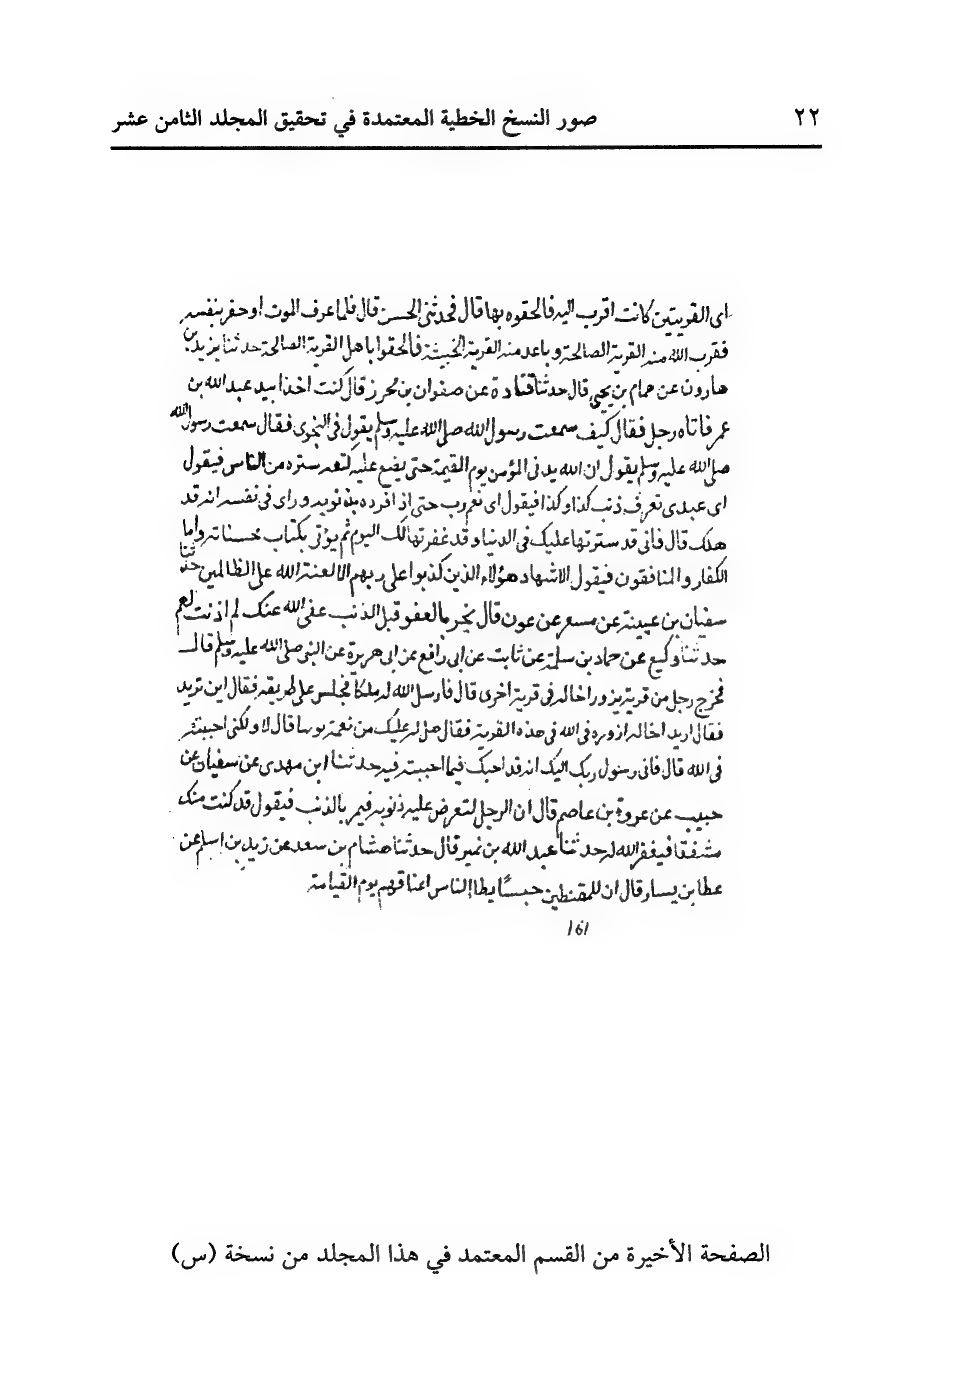 ٢٢ صور النسخ الخطية المعتمدة في تحقيق المجلد الثامن عشر
اى القريتين كانت اقرب اليه فالحقوه بها قال فحدثنى الحسن قال فلما عرف الموت احتفز بنفسه
فقرب الله منه القرية الصالحة وباعد منه القرية الخبيثة فألحقوا باهل القرية الصالحة حدثنا يزيد بن
هارون عن همام بن يحيى قال حدثنا قتادة عن صفوان بن محرز قال كنت اخذا بيد عبد الله بن
عمر فاتاه رجل فقال كيف سمعت رسول الله صلى الله عليه وسلم يقول فى النجوى فقال سمعت رسول الله
صلى الله عليه وسلم يقول ان الله يدنى المؤمن يوم القيمة حتى يضع عليه كنفه ستره من الناس فيقول
اى عبدى تعرف ذنب كذا وكذا فيقول اى نعم رب حتى اذا قرره بذنوبه وراى فى نفسه انه قد
هلك قال فانى قد سترتها عليك فى الدنيا وقد غفرتها لك اليوم ثم يؤتى بكتاب حسناته واما
الكفار والمنافقون فيقول الاشهاد هؤلاء الذين كذبوا على ربهم الا لعنة الله على الظالمين حدثنا
سفيان بن عيينة عن مسعر عن عون قال يخبر بالعفو قبل الذنب عفى الله عنك لم اذنت لهم
حدثنا وكيع عن حماد بن سلمة عن ثابت عن ابى رافع عن ابى هريرة عن النبى صلى الله عليه وسلم قال
فخرج رجل من قرية يزور اخا له فى قرية اخرى قال فارسل الله له ملكا فجلس على طريقه فقال اين تريد
فقال اريد اخا لى ازوره فى الله فى هذه القرية فقال هل له عليك من نعمة قال لا ولكنى احببته
فى الله قال فانى رسول ربك اليك انه قد احبك فيما احببته فيه حدثنا ابن مهدى عن سفيان عن
حبيب عن عروة بن عاصم قال ان الرجل لتعرض عليه ذنوبه فيمر بالذنب فيقول قد كنت منك
مشفقا فيغفر الله له حدثنا عبد الله بن نمير قال حدثنا هشام بن سعد عن زيد بن اسلم عن
عطا بن يسار قال ان للمقنطين حبسًا يطا الناس اعناقهم يوم القيامة
الصفحة الأخيرة من القسم المعتمد في هذا المجلد من نسخة (س)